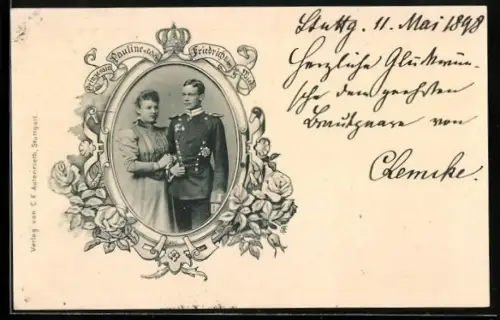 Prinzessin Pauline und Friedrich
Stuttg. 11. Mai 1898
Herzliche Glückwün-
sche dem geehrten
Brautpaare von
CLemcke.
Verlag von C. F. Autenrieth, Stuttgart